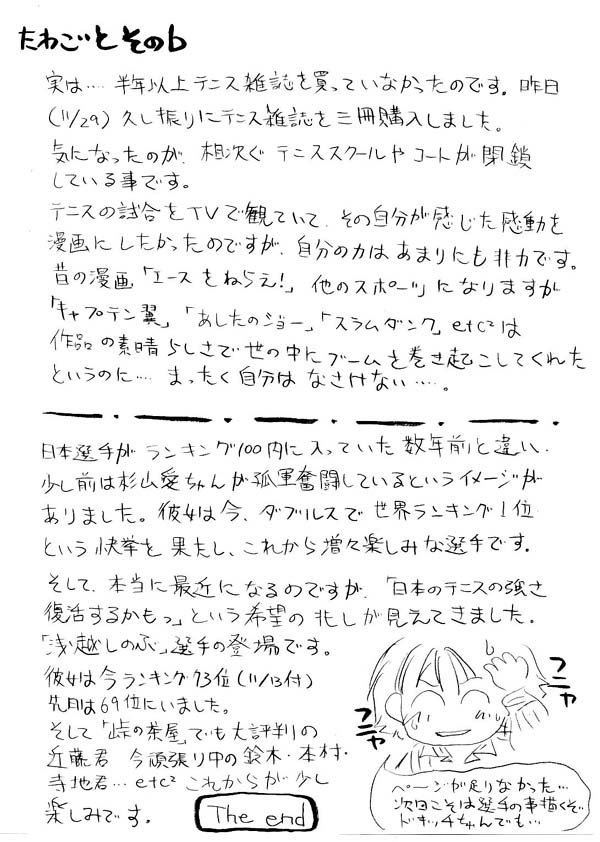 たわごとその6
実は‥‥半年以上テニス雑誌を買っていなかったのです。昨日
(11/29) 久し振りにテニス雑誌を三冊購入しました。
気になったのが、相次ぐテニススクールやコートが閉鎖
している事です。
テニスの試合をTVで観ていて、その自分が感じた感動を
漫画にしたかったのですが、自分の力はあまりにも非力です。
昔の漫画「エースをねらえ!」他のスポーツになりますが
「キャプテン翼」「あしたのジョー」「スラムダンク」etc²は
作品の素晴らしさで世の中にブームを巻き起こしてくれた
というのに‥‥まったく自分はなさけない‥‥。
日本選手がランキング100内に入っていた数年前と違い、
少し前は杉山愛ちゃんが孤軍奮闘しているというイメージが
ありました。彼女は今、ダブルスで世界ランキング1位
という快挙を果たし、これから増々楽しみな選手です。
そして、本当に最近になるのですが、「日本のテニスの強さ
復活するかもっ」という希望の兆しが見えてきました。
「浅越しのぶ」選手の登場です。
彼女は今ランキング73位(11/13付)
先月は69位にいました。
そして「峠の茶屋」でも大評判の
近藤君 今頑張り中の鈴木・本村・
寺地君…etc² これからが少し
楽しみです。
The end
フニャ
フニャ
ページが足りなかった…
次回こそは選手の事描くぞ
ドキッチちゃんでも…